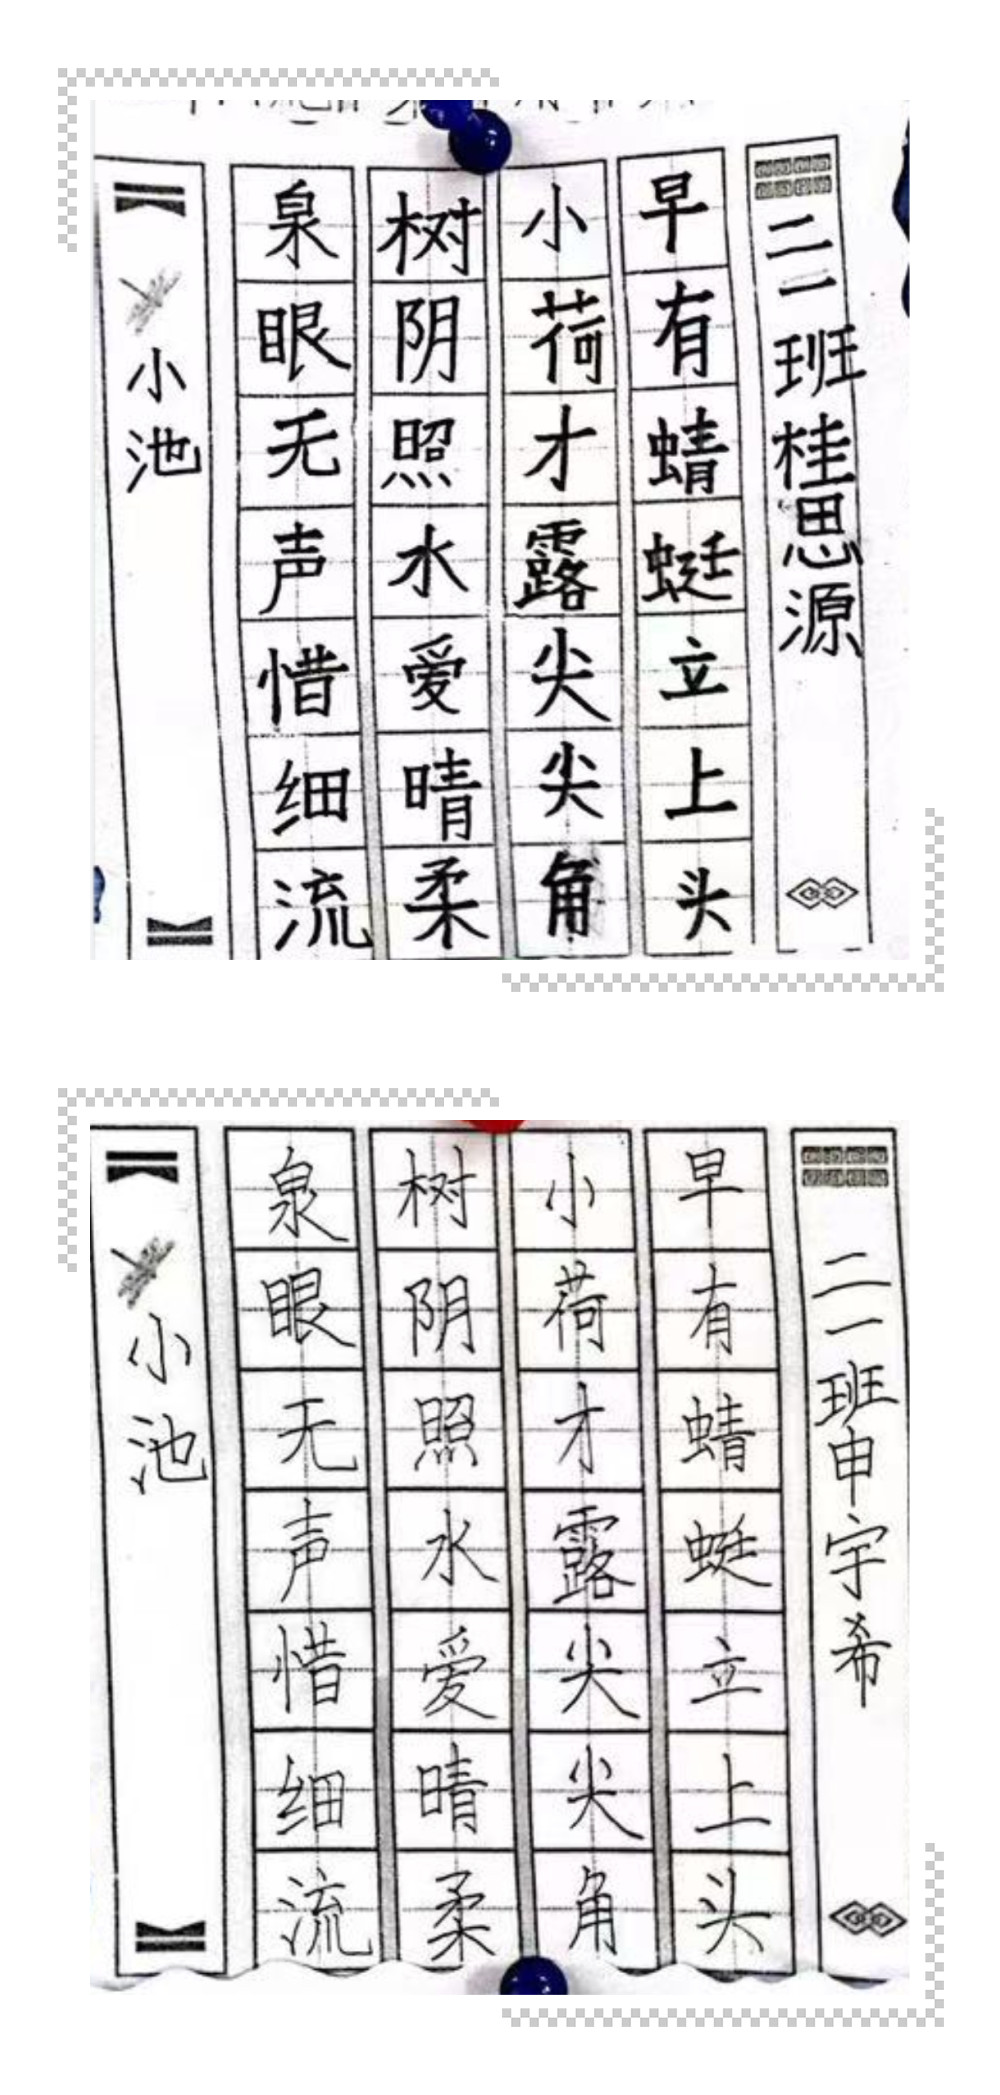 小池
泉眼无声惜细流
树阴照水爱晴柔
小荷才露尖尖角
早有蜻蜓立上头
二一班桂思源
小池
泉眼无声惜细流
树阴照水爱晴柔
小荷才露尖尖角
早有蜻蜓立上头
二一班申宇希